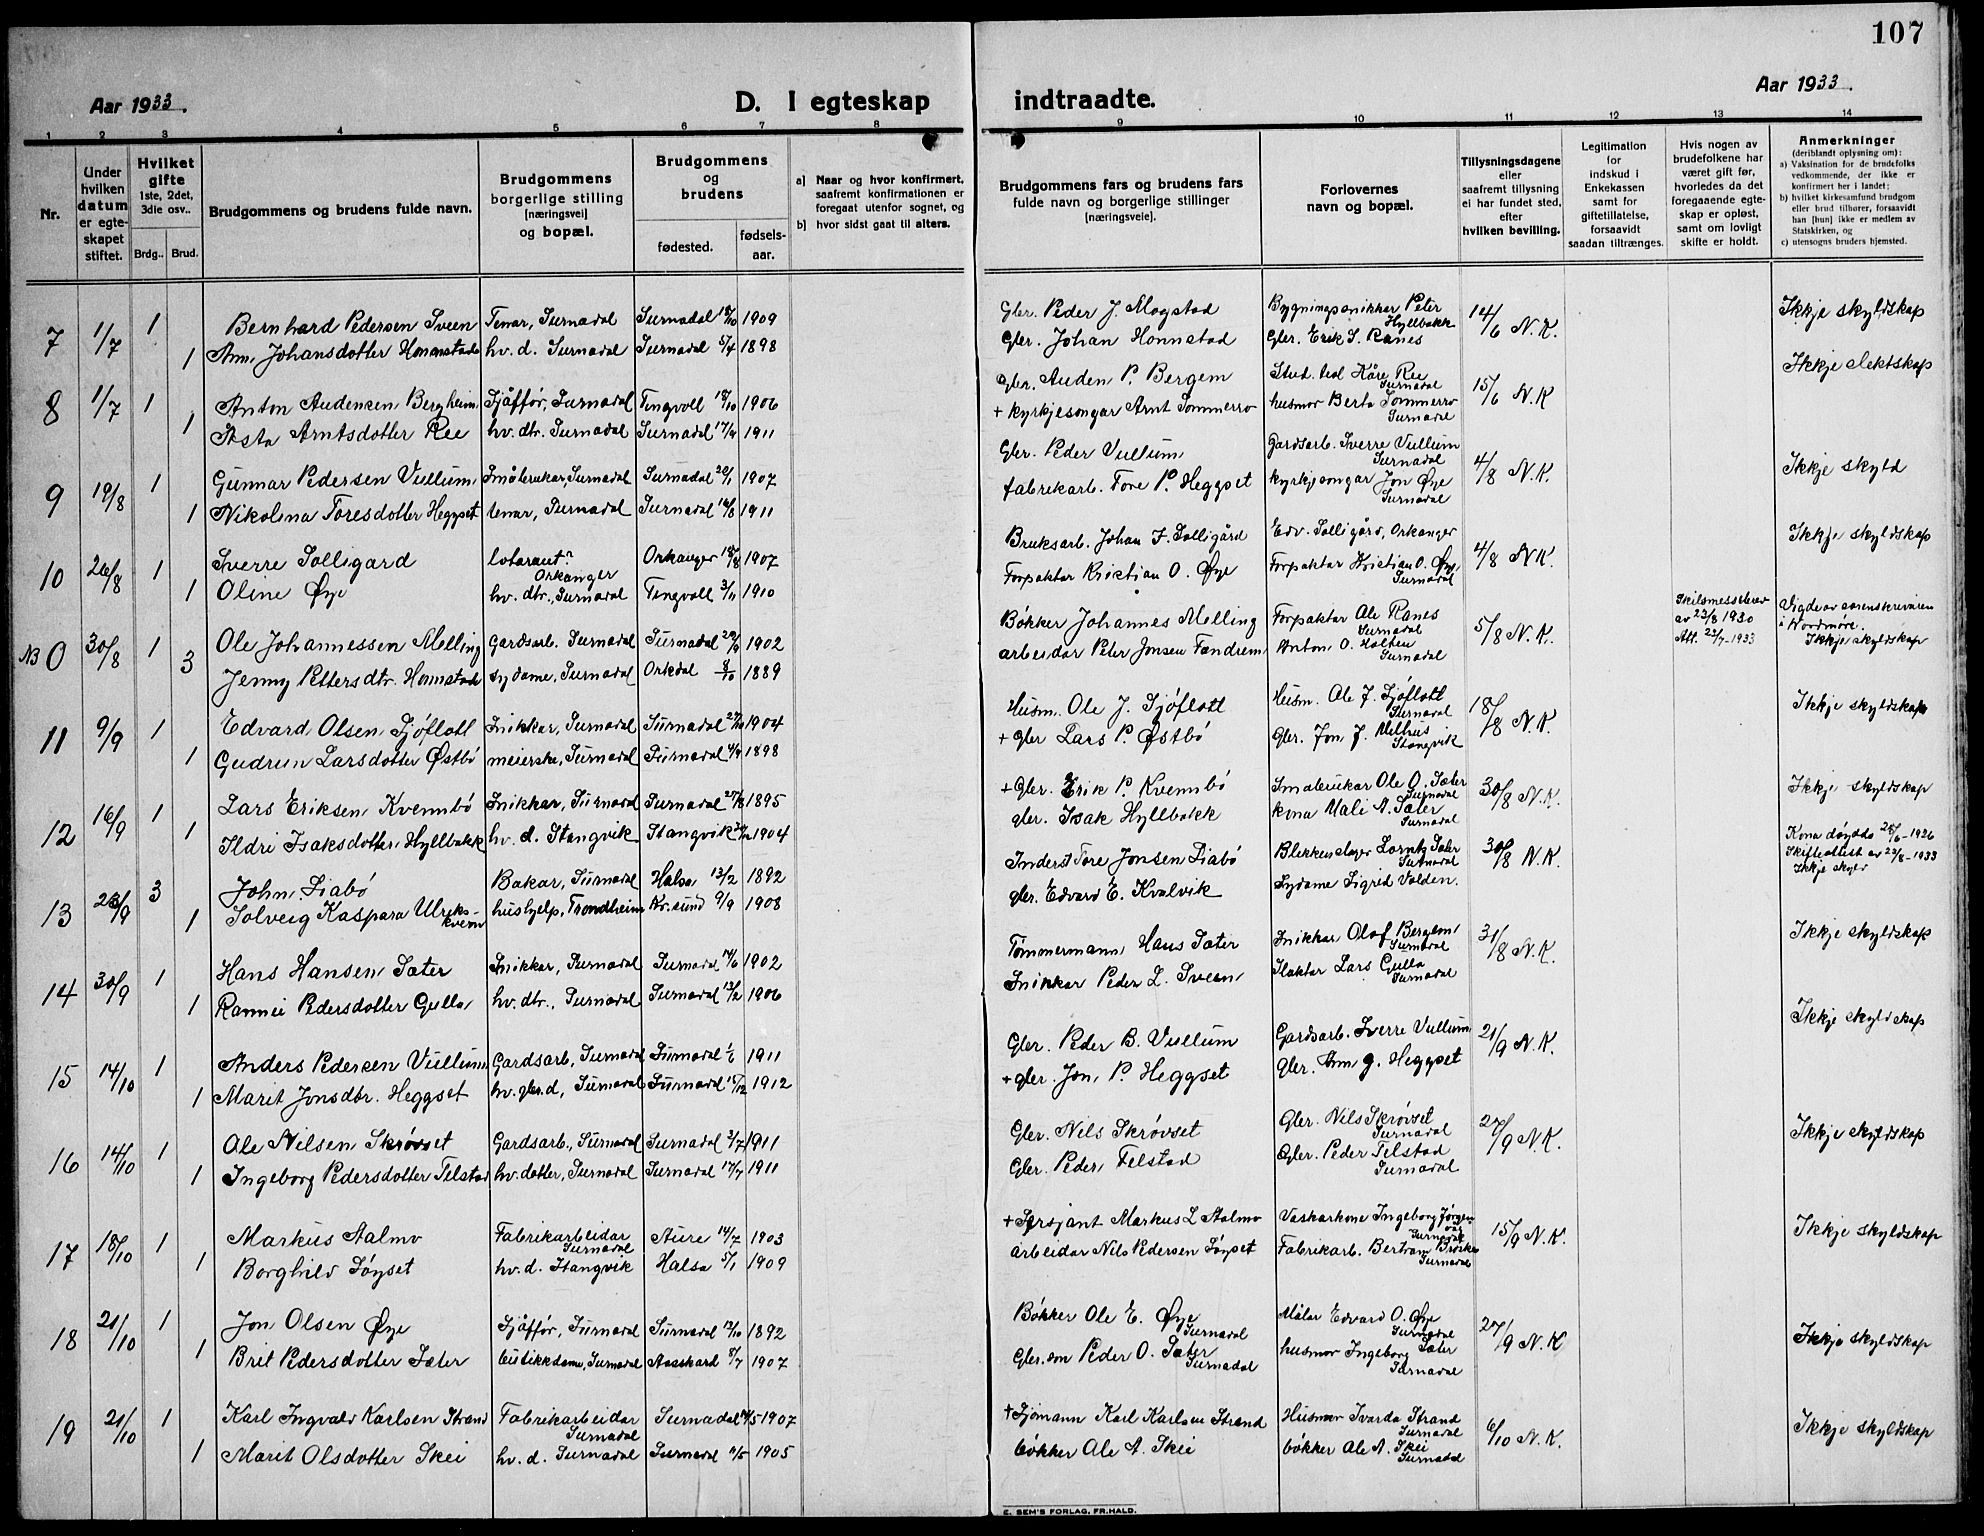 107
Aar 1933.
D. I egteskap
indtraadte.
Aar 1933.
1 2 3 4 5 6 7 8 9 10 11 12 13 14
Nr.
Under hvilken datum er egteskapet stiftet.
Hvilket gifte 1ste, 2det, 3die osv..
Brdg.. Brud.
Brudgommens og brudens fulde navn.
Brudgommens borgerlige stilling [næringsvei] og bopæl.
Brudgommens og brudens
fødested.
fødselsaar.
a) Naar og hvor konfirmert, saafremt konfirmationen er foregaat utenfor sognet, og
b) hvor sidst gaat til alters.
Brudgommens fars og brudens fars fulde navn og borgerlige stillinger [næringsveie].
Forlovernes navn og bopæl.
Tillysningsdagene eller saafremt tillysning ei har fundet sted, efter hvilken bevilling.
Legitimation for indskud i Enkekassen samt for giftetillatelse, forsaavidt saadan tiltrænges.
Hvis nogen av brudefolkene har været gift før, hvorledes da det foregaaende egteskap er opløst, samt om lovligt skifte er holdt.
Anmerkninger (deriblandt oplysning om):
a) Vaksination for de brudefolks vedkommende, der ikke er konfirmert her i landet;
b) hvilket kirkesamfund brudgom eller brud tilhører, forsaavidt han [hun] ikke er medlem av Statskirken, og
c) utensogns bruders hjemsted.
7 1/7 1 Bernhard Pedersen Sveen Tenar, Surnadal Surnadal 18/10 1909 Gbr. Peder J. Mogstad Bygningssnikkar Peter Hyllbakk 14/6 N.K. Ikkje skyldskap
1 Ann Johansdotter Honnstad hv. d. Surnadal Surnadal 5/4 1898 Gbr. Johan Honnstad Gbr. Erik S. Ranes
8 1/7 1 Anton Audensen Bergheim Sjåffør, Surnadal Tingvoll 18/10 1906 Gbr. Auden P. Bergem Stud. Kåre Ree Surnadal 15/6 N.K Ikkje slektskap
1 Asta Arntsdotter Ree hv. dtr. Surnadal Surnadal 17/9 1911 + kyrkjesongar Arnt Sommerro husmor Berta Sommerro Surnadal
9 19/8 1 Gunnar Pedersen Vullum Småbrukar, Surnadal Surnadal 20/1 1907 Gbr. Peder Vullum Gardsarb. Sverre Vullum Surnadal 4/8 N.K. Ikkje skyld
1 Nikolina Toresdotter Heggset tenar, Surnadal Surnadal 1911 fabrikarb. Tore P. Heggset kyrkjesongar Jon Øye Surnadal
10 26/8 1 Sverre Solligard Orkanger Orkanger 18/8 1907 Bruksarb. Johan F. Solligård Edv. Solligård, Orkanger 4/8 N.K. Ikkje skyldskap
1 Oline Øye hv. dtr., Surnadal Tingvoll 3/11 1910 Forpaktar Kristian O. Øye Forpaktar Kristian O. Øye Surnadal
NB 0 30/8 1 Ole Johannessen Melling Gardsarb. Surnadal Surnadal 1902 Bøkker Johannes Melling Forpaktar Ole Ranes Surnadal 5/8 N.K. Skilsmessebrev av 23/8 1930 Att. 22/7-1933 Vigde av sorenskrivaren i Nordmøre. Ikkje skyldskap
3 Jenny Pettersdtr. Honnstad sydame, Surnadal Orkdal 8/10 1889 arbeidar Peter Jonsen Fandrem Anton O. Holten Surnadal
11 9/9 1 Edvard Olsen Sjøflott Snikkar, Surnadal Surnadal 1904 Husm. Ole J. Sjøflott Husm. Ole J. Sjøflott Surnadal 18/8 N.K. Ikkje skyldskap
1 Gudrun Larsdotter Østbø meierske, Surnadal Surnadal 1898 + gbr Lars P. Østbø Gbr. Jon J. Melhus Stangvik
12 16/9 1 Lars Eriksen Kvennbø Snikkar, Surnadal Surnadal 27/8 1895 + Gbr. Erik P. Kvennbø Småbrukar Ole O. Sæter Surnadal 30/8 N.K. Ikkje skyldskap
1 Ildri Isaksdotter Hyllbakk hv. d. Stangvik Stangvik 1904 gbr. Isak Hyllbakk kona Mali A. Sæter Surnadal
13 23/9 3 John Siabø Bakar, Surnadal Halsa 13/2 1892 Inderst Tore Jonsen Siabø Blikkenslager Lorntz Sæter Surnadal 30/8 N.K. Kona døydde 28/6-1926 Skifteattest av 22/8-1933 Ikkje skyld
1 Solveig Kaspara Ulrekskvenn hushjelp, Trondheim Kr.sund 9/9 1908 gbr. Edvard E. Kvalvik Sydame Sigrid Volden.
14 30/9 1 Hans Hansen Sæter Snikkar, Surnadal Surnadal 1902 Tømmermann Hans Sæter Snikkar Olaf Bergem Surnadal 31/8 N.K. Ikkje skyldskap
1 Rannei Pedersdotter Gulla hv. dtr., Surnadal Surnadal 13/2 1906 Snikkar Peder L. Sveen Slaktar Lars Gulla Surnadal
15 14/10 1 Anders Pedersen Vullum Gardsarb. Surnadal Surnadal 1/6 1911 Gbr. Peder B. Vullum Gardsarb. Sverre Vullum 21/9 N.K. Ikkje skyldskap
1 Marit Jonsdtr. Heggset hv. gbr.d, Surnadal Surnadal 15/12 1912 + gbr. Jon P. Heggset Gbr. Ann G. Heggset
16 14/10 1 Ole Nilsen Skrøvset Gardsarb., Surnadal Surnadal 3/7 1911 Gbr. Nils Skrøvset Gbr. Nils Skrøvset Surnadal 27/9 N.K. Ikkje skyldskap
1 Ingeborg Pedersdotter Telstad hv. dotter, Surnadal Surnadal 17/7 1911 Gbr. Peder Telstad Gbr. Peder Telstad Surnadal
17 18/10 1 Markus Aalmo Fabrikarbeidar Surnadal Aure 14/7 1903 + Sersjant Markus L Aalmo Vaskarkone Ingeborg Surnadal 15/9 N.K. Ikkje skyldskap
1 Borghild Søyset hv. d. Stangvik Halsa 5/1 1909 arbeidar Nils Pedersen Søyset Fabrikarb. Bertram Surnadal
18 21/10 1 Jon Olsen Øye Sjåffør, Surnadal Surnadal 12/10 1892 Bøkker Ole E. Øye Surnadal Målar Edvard O. Øye Surnadal 27/9 N.K Ikkje skyldskap
1 Brit Pedersdotter Sæter butikkdame, Surnadal Aasskard 8/7 1907 Gbr.sn Peder O. Sæter Surnadal husmor Ingeborg Sæter Surnadal
19 21/10 1 Karl Ingvald Karlsen Strand Fabrikarbeidar Surnadal Surnadal 1907 + Sjømann Karl Karlsen Strand Husmor Svarda Strand Surnadal 6/10 N.K. Ikkje skyldskap
1 Marit Olsdotter Skei hv. d. Surnadal Surnadal 11/5 1905 bøkker Ole A. Skei bøkker Ole A. Skei Surnadal
E. SEM'S FORLAG, FR.HALD.